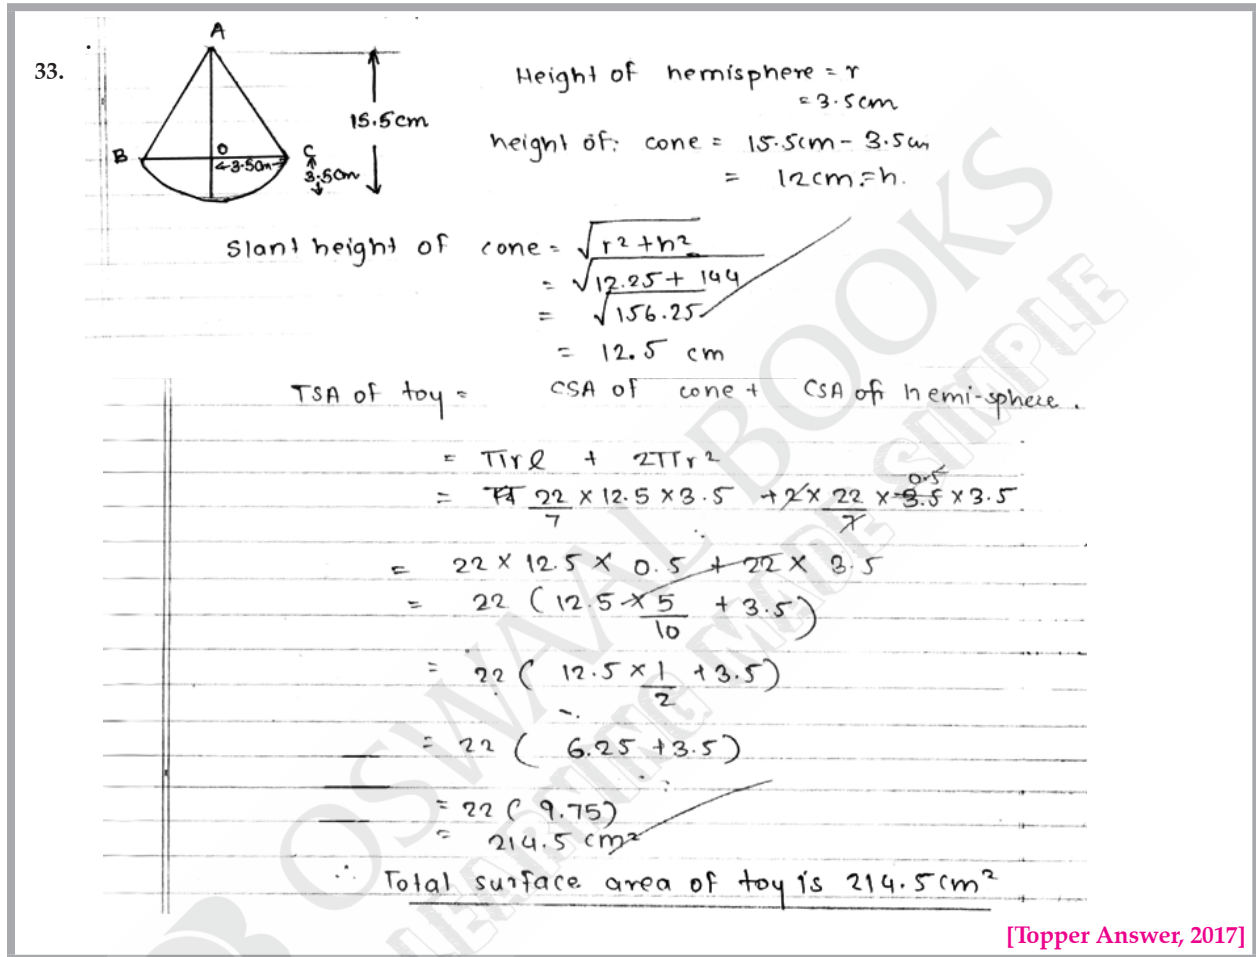 33.
A
B
O
C
3.5cm
3.5cm
15.5cm
Height of hemisphere = r
= 3.5cm
height of: cone = 15.5cm - 3.5cm
= 12cm = h.
Slant height of cone = √r² + h²
= √12.25 + 144
= √156.25
= 12.5 cm
TSA of toy = CSA of cone + CSA of hemi-sphere.
= πrl + 2πr²
= 22/7 × 12.5 × 3.5 + 2 × 22/7 × 3.5 × 3.5
0.5
= 22 × 12.5 × 0.5 + 22 × 3.5
= 22 ( 12.5 × 5/10 + 3.5 )
= 22 ( 12.5 × 1/2 + 3.5 )
= 22 ( 6.25 + 3.5 )
= 22 ( 9.75 )
= 214.5 cm²
∴ Total surface area of toy is 214.5cm²
[Topper Answer, 2017]
OSWAAL BOOKS
LEARNING MADE SIMPLE